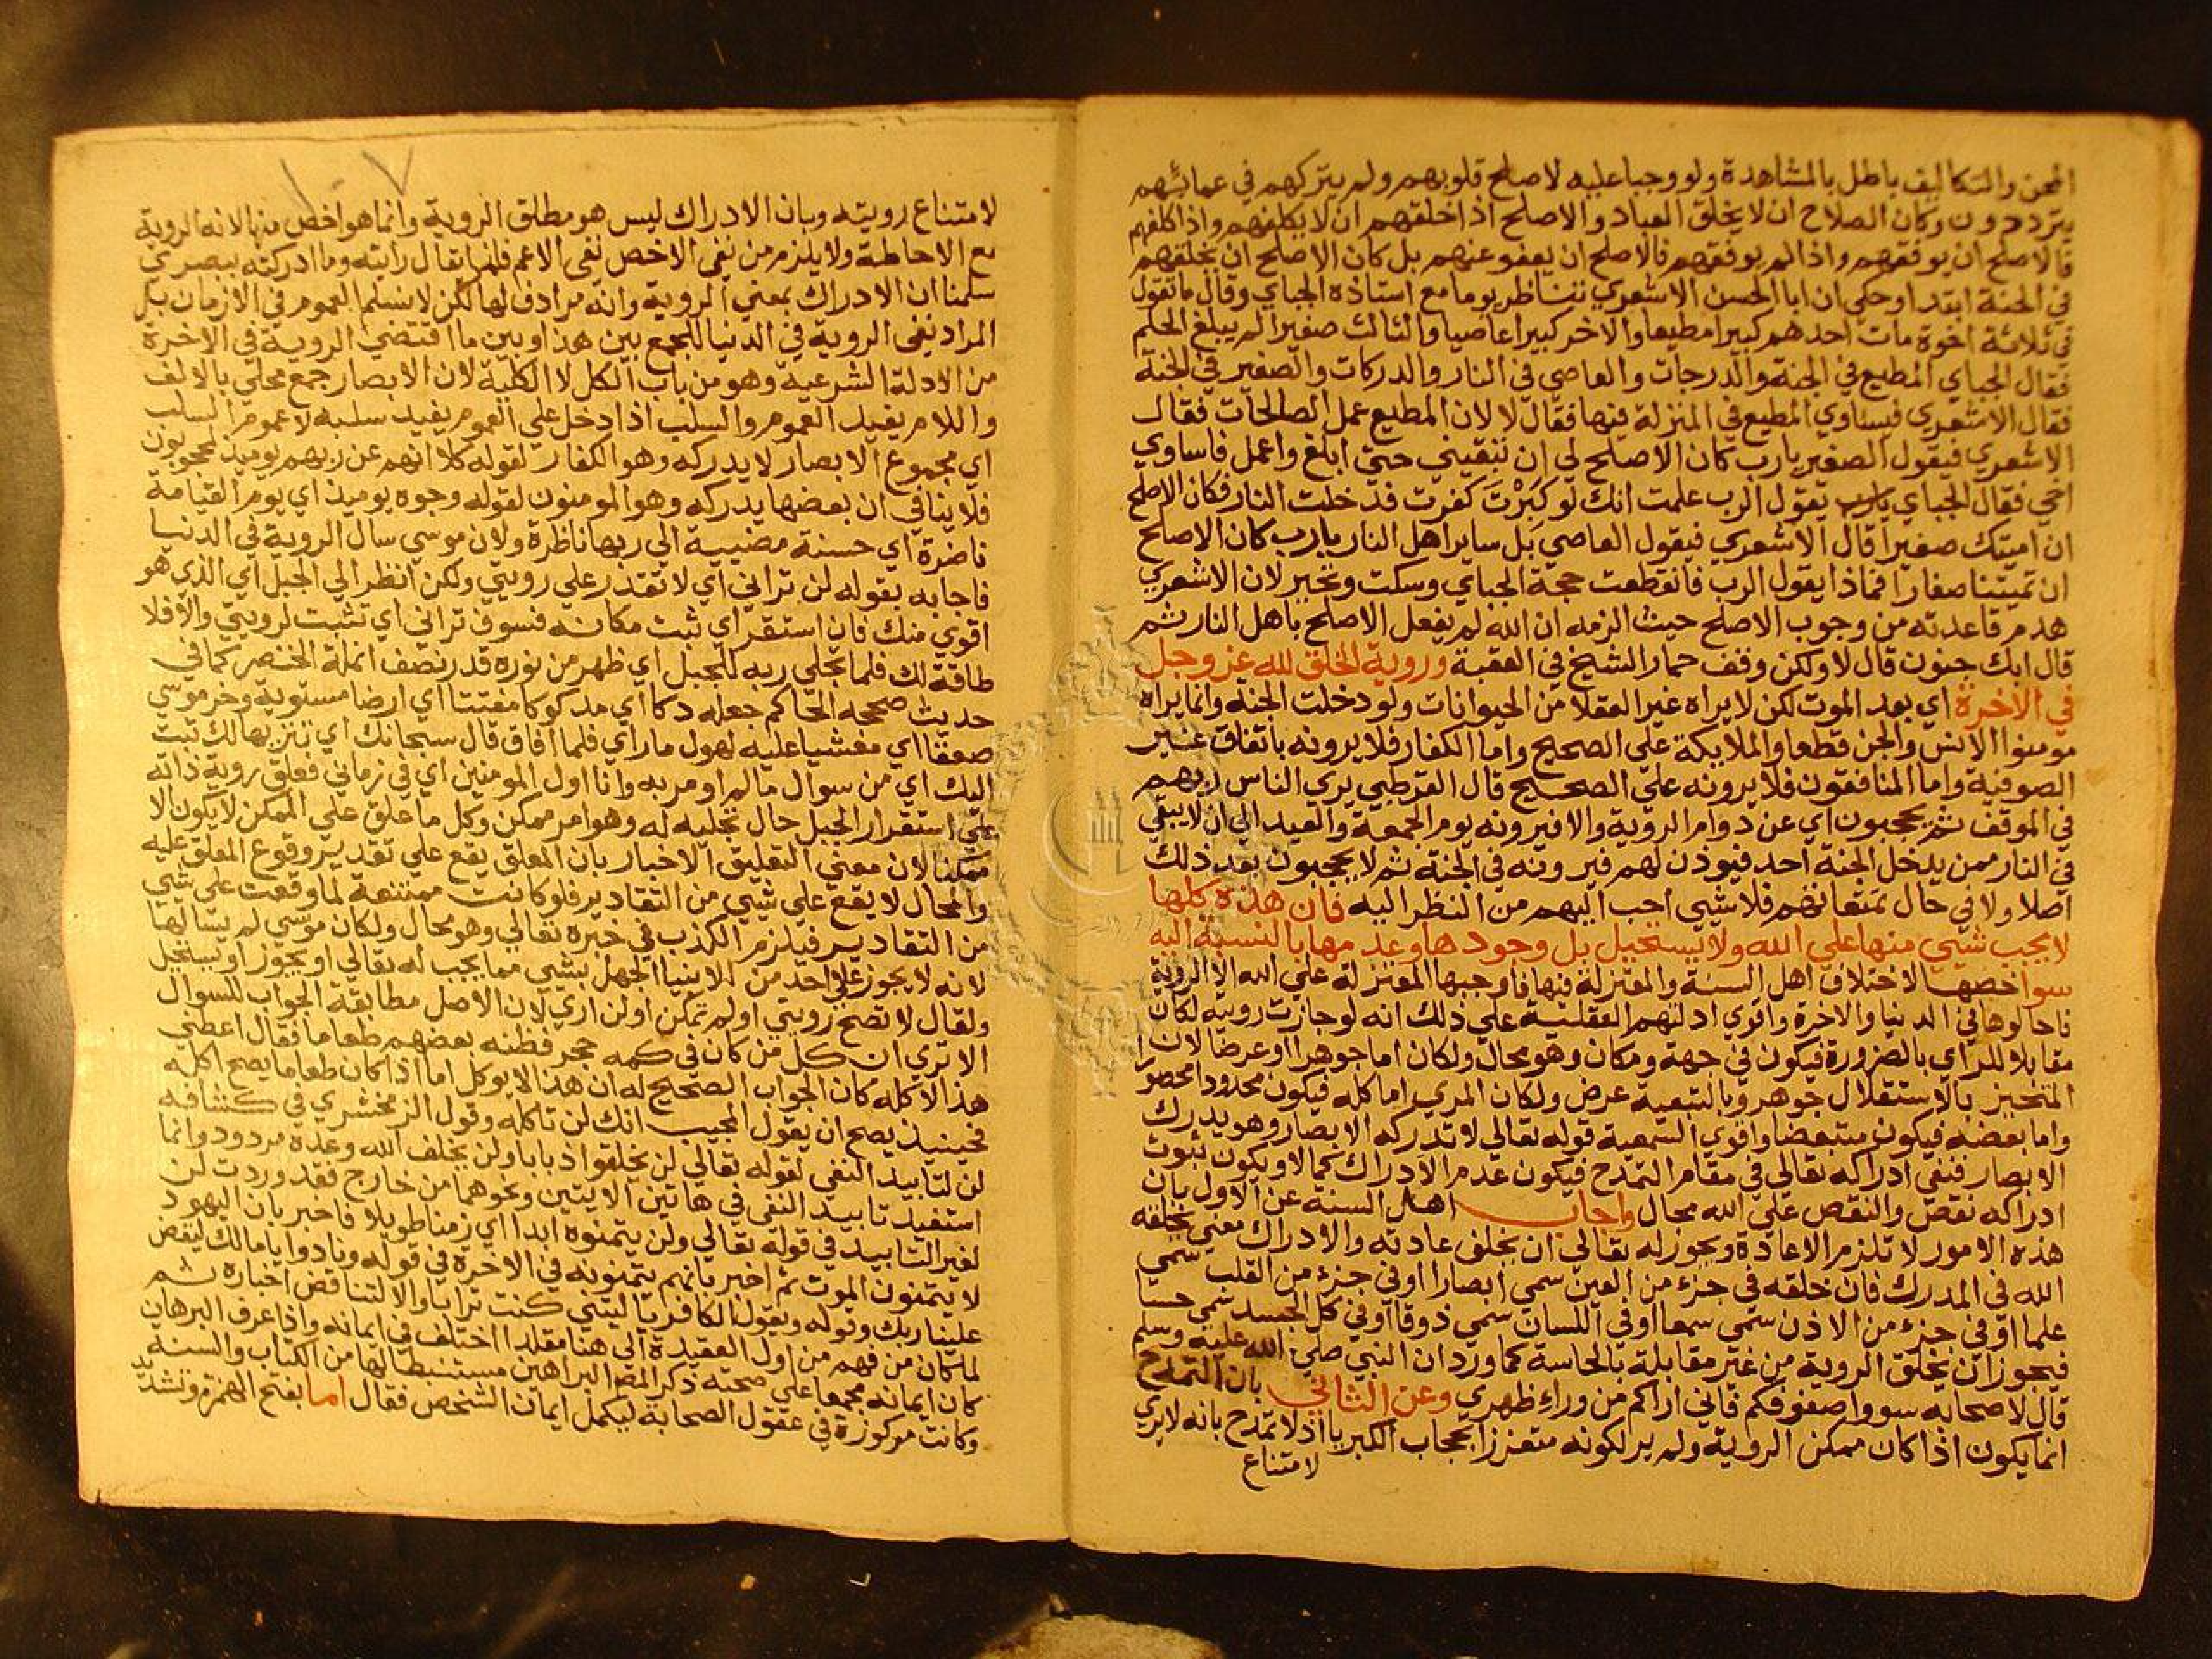 المحن والتكاليف باطل بالمشاهدة ولو وجبا عليه لاصلح قلوبهم ولم يتركهم في عمايتهم
يترددون وكان الصلاح ان لا يخلق العباد والاصلح اذا خلقهم ان لا يكلفهم واذا كلفهم
فالاصلح ان يوفقهم واذا لم يوفقهم فالاصلح ان يعفو عنهم بل كان الاصلح ان يخلقهم
في الجنة ابتدا وحكي ان ابا الحسن الاشعري تناظر يوما مع استاذه الجباي وقال ما تقول
في ثلاثة اخوة مات احدهم كبيرا مطيعا والاخر كبيرا عاصيا والثالث صغيرا لم يبلغ الحلم
فقال الجباي المطيع في الجنة والدرجات والعاصي في النار والدركات والصغير في الجنة
فقال الاشعري فيساوي المطيع في المنزلة فيها فقال لا لان المطيع عمل الصالحات فقال
الاشعري فيقول الصغير يارب كان الاصلح لي ان تبقيني حتي ابلغ واعمل فاساوي
اخي فقال الجباي يقول الرب علمت انك لو كَبِرْتَ كفرت فدخلت النار فكان الاصلح
ان اميتك صغيرا قال الاشعري فيقول العاصي بل ساير اهل النار يارب كان الاصلح
ان تميتنا صغارا فماذا يقول الرب فانقطعت حجة الجباي وسكت وتحير لان الاشعري
هدم قاعدته من وجوب الاصلح حيث الزمه ان الله لم يفعل الاصلح باهل النار ثم
قال ابك جنون قال لا ولكن وقف حمار الشيخ في العقبة وروية الخلق لله عز وجل
في الاخرة اي بعد الموت لكن لا يراه غير العقلا من الحيوانات ولو دخلت الجنة وانما يراه
مومنوا الانس والجن قطعا والملايكة علي الصحيح واما الكفار فلا يرونه باتفاق غير
الصوفية واما المنافقون فلا يرونه علي الصحيح قال القرطبي يري الناس ربهم
في الموقف ثم يحجبون اي عن دوام الروية والا فيرونه يوم الجمعة والعيد الي ان لا يبقي
في النار ممن يدخل الجنة احد فيوذن لهم فيرونه في الجنة ثم لا يحجبون بعد ذلك
اصلا ولا في حال تمتعاتهم فلا شيي احب اليهم من النظر اليه فان هذه كلها
لا يجب شيي منها علي الله ولا يستحيل بل وجودها وعدمها بالنسبة اليه
سوا خصها لاختلاف اهل السنة والمعتزلة فيها فاوجبها المعتزلة علي الله الا الروية
فاحالوها في الدنيا والاخرة واقوي ادلتهم العقلية علي ذلك انه لو جازت رويته لكان
مقابلا للراي بالضرورة فيكون في جهة ومكان وهو محال ولكان اما جوهرا او عرضا لان
المتحيز بالاستقلال جوهر وبالتبعية عرض ولكان المري اما كله فيكون محدودا محصورا
واما بعضه فيكون متبعضا واقوي السمعية قوله تعالي لا تدركه الابصار وهو يدرك
الابصار فنفي ادراكه تعالي في مقام التمدح فيكون عدم الادراك كمالا ويكون ثبوت
ادراكه نقص والنقص علي الله محال واجاب اهل السنة عن الاول بان
هذه الامور لا تلزم الا عادة ويجوز له تعالي ان يخلق عادته والادراك معني يخلقه
الله في المدرك فان خلقه في جزء من العين سمي ابصارا او في جزء من القلب سمي
علما او في جزء من الاذن سمي سمعا او في اللسان سمي ذوقا او في كل الجسد سمي حسا
فيجوز ان يخلق الروية من غير مقابلة بالحاسة كما ورد ان النبي صلي الله عليه وسلم
قال لاصحابه سووا صفوفكم فاني اراكم من وراء ظهري وعن الثاني بان التمدح
انما يكون اذا كان ممكن الروية ولم ير لكونه متعززا بحجاب الكبريا اذ لا تمدح بانه لا يري
لامتناع
١٠٧
لامتناع رويته وبان الادراك ليس هو مطلق الروية وانما هو اخص منها لانه الروية
مع الاحاطة ولا يلزم من نفي الاخص نفي الاعم فلهذا يقال رايته وما ادركته ببصري
سلمنا ان الادراك بمعني الروية وانه مرادف لها لكن لا نسلم العموم في الازمان بل
المراد نفي الروية في الدنيا للجمع بين هذا وبين ما اقتضي الروية في الاخرة
من الادلة الشرعية وهو من باب الكل لا الكلية لان الابصار جمع محلي بالالف
واللام يفيد العموم والسلب اذا دخل علي العموم يفيد سلبه لا عموم السلب
اي مجموع الابصار لا يدركه وهو الكفار لقوله كلا انهم عن ربهم يوميذ لمحجوبون
فلا ينافي ان بعضها يدركه وهو المومنون لقوله وجوه يوميذ اي يوم القيامة
ناضرة اي حسنة مضيية الي ربها ناظرة ولان موسي سال الروية في الدنيا
فاجابه بقوله لن تراني اي لا تقدر علي رويتي ولكن انظر الي الجبل اي الذي هو
اقوي منك فان استقر اي ثبت مكانه فسوف تراني اي تثبت لرويتي والا فلا
طاقة لك فلما تجلي ربه للجبل اي ظهر من نوره قدر نصف انملة الخنصر كما في
حديث صححه الحاكم جعله دكا اي مدكوكا مفتتا اي ارضا مستوية وخر موسي
صعقا اي مغشيا عليه لهول ما راي فلما افاق قال سبحانك اي تنزيها لك تبت
اليك اي من سوال ما لم اومر به وانا اول المومنين اي في زماني فعلق روية ذاته
علي استقرار الجبل حال تجليه له وهو امر ممكن وكل ما علق علي الممكن لا يكون الا
ممكنا لان معني التعليق الاخبار بان المعلق يقع علي تقدير وقوع المعلق عليه
والمحال لا يقع علي شيي من التقادير فلو كانت ممتنعة لما وقعت علي شيي
من التقادير فيلزم الكذب في خبره تعالي وهو محال ولكان موسي لم يسالها
لانه لا يجوز علي احد من الانبيا الجهل بشيي مما يجب له تعالي او يجوز او يستحيل
ولقال لا تصح رويتي او لم تمكن او لن اري لان الاصل مطابقة الجواب للسوال
الا تري ان كل من كان في كمه حجر فظنه بعضهم طعاما فقال اعطني
هذا لاكله كان الجواب الصحيح له ان هذا لا يوكل اما اذا كان طعاما يصح اكله
فحينيذ يصح ان يقول المجيب انك لن تاكله وقول الزمخشري في كشافه
لن لتابيد النفي لقوله تعالي لن يخلقوا ذبابا ولن يخلف الله وعده مردود وانما
استفيد تابيد النفي في هاتين الايتين ونحوهما من خارج فقد وردت لن
لغير التابيد في قوله تعالي ولن يتمنوه ابدا اي زمنا طويلا فاخبر بان اليهود
لا يتمنون الموت ثم اخبر بانهم يتمنونه في الاخرة في قوله ونادوا يا مالك ليقض
علينا ربك وقوله ويقول الكافر يا ليتني كنت ترابا والا لتناقض اخباره ثم
لما كان من فهم من اول العقيدة الي هنا مقلدا اختلف في ايمانه واذا عرف البرهان
كان ايمانه مجمعا علي صحته ذكر المص البراهين مستنبطا لها من الكتاب والسنة
وكانت مركوزة في عقول الصحابة ليكمل ايمان الشخص فقال اما بفتح الهمزة وتشديد